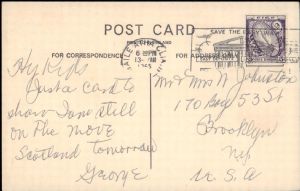 POST CARD
FOR CORRESPONDENCE
FOR ADDRESS ONLY
SAVE THE
ÉIRE
Hy Kids
Just a card to
show I am still
on the move
Scotland tomorrow
George
Mr and Mrs W Johnston
170 Bay 53 St
Brooklyn
NY
U.S.A